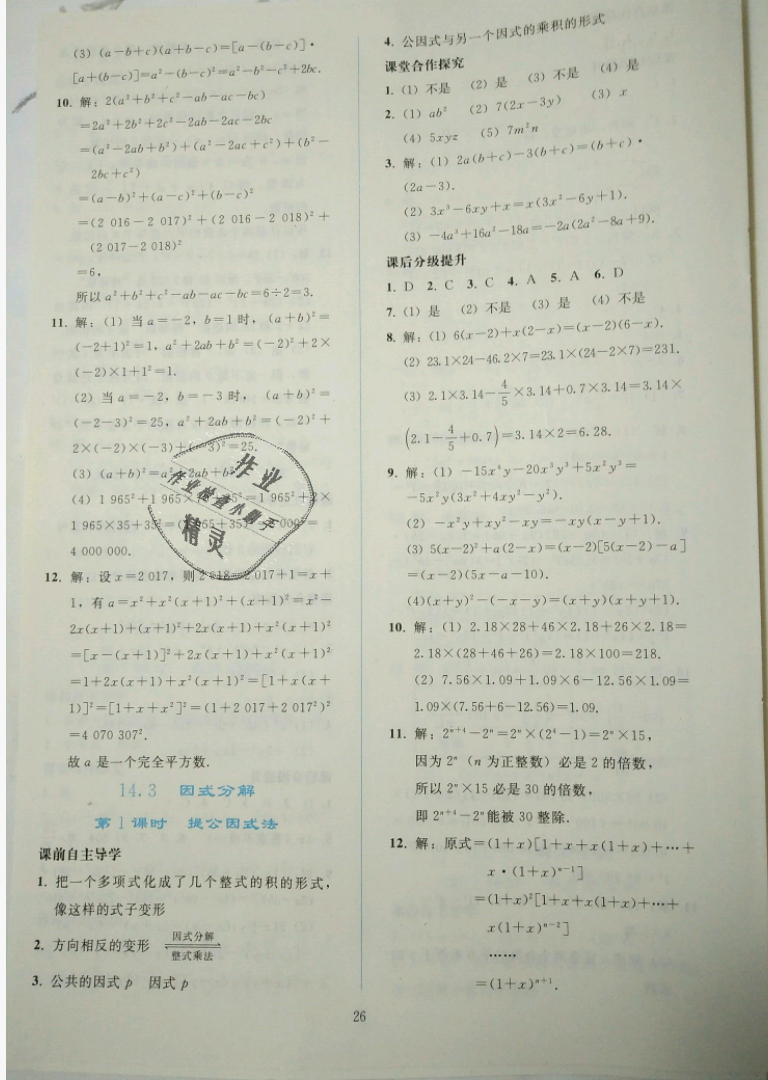 (3) (a-b+c)(a+b-c)=[a-(b-c)]·
[a+(b-c)]=a²-(b-c)²=a²-b²-c²+2bc.
10. 解：2(a²+b²+c²-ab-ac-bc)
=2a²+2b²+2c²-2ab-2ac-2bc
=(a²-2ab+b²)+(a²-2ac+c²)+(b²-
2bc+c²)
=(a-b)²+(a-c)²+(b-c)²
=(2 016-2 017)²+(2 016-2 018)²+
(2 017-2 018)²
=6,
所以 a²+b²+c²-ab-ac-bc=6÷2=3.
11. 解：(1) 当 a=-2，b=1 时，(a+b)²=
(-2+1)²=1，a²+2ab+b²=(-2)²+2×
(-2)×1+1²=1.
(2) 当 a=-2，b=-3 时，(a+b)²=
(-2-3)²=25，a²+2ab+b²=(-2)²+
2×(-2)×(-3)+(-3)²=25.
(3) (a+b)²=a²+2ab+b²
(4) 1 965²+1 965×70+35²=1 965²+2×
1 965×35+35²=(1 965+35)²=2 000²=
4 000 000.
12. 解：设 x=2 017，则 2 018=2 017+1=x+
1，有 a=x²+x²(x+1)²+(x+1)²=x²-
2x(x+1)+(x+1)²+2x(x+1)+x²(x+1)²
=[x-(x+1)]²+2x(x+1)+x²(x+1)²
=1+2x(x+1)+x²(x+1)²=[1+x(x+
1)]²=[1+x+x²]²=(1+2 017+2 017²)²
=4 070 307².
故 a 是一个完全平方数.
14.3 因式分解
第1课时 提公因式法
课前自主导学
1. 把一个多项式化成了几个整式的积的形式，
像这样的式子变形
2. 方向相反的变形 因式分解 ⇌ 整式乘法
3. 公共的因式 p 因式 p
4. 公因式与另一个因式的乘积的形式
课堂合作探究
1. (1) 不是 (2) 是 (3) 不是 (4) 是
2. (1) ab² (2) 7(2x-3y) (3) x
(4) 5xyz (5) 7m²n
3. 解：(1) 2a(b+c)-3(b+c)=(b+c)·
(2a-3).
(2) 3x³-6xy+x=x(3x²-6y+1).
(3) -4a³+16a²-18a=-2a(2a²-8a+9).
课后分级提升
1. D 2. C 3. C 4. A 5. A 6. D
7. (1) 是 (2) 不是 (3) 是 (4) 不是
8. 解：(1) 6(x-2)+x(2-x)=(x-2)(6-x).
(2) 23.1×24-46.2×7=23.1×(24-2×7)=231.
(3) 2.1×3.14-4/5×3.14+0.7×3.14=3.14×
(2.1-4/5+0.7)=3.14×2=6.28.
9. 解：(1) -15x⁴y-20x³y³+5x²y³=
-5x²y(3x²+4xy²-y²).
(2) -x²y+xy²-xy=-xy(x-y+1).
(3) 5(x-2)²+a(2-x)=(x-2)[5(x-2)-a]
=(x-2)(5x-a-10).
(4)(x+y)²-(-x-y)=(x+y)(x+y+1).
10. 解：(1) 2.18×28+46×2.18+26×2.18=
2.18×(28+46+26)=2.18×100=218.
(2) 7.56×1.09+1.09×6-12.56×1.09=
1.09×(7.56+6-12.56)=1.09.
11. 解：2ⁿ⁺⁴-2ⁿ=2ⁿ×(2⁴-1)=2ⁿ×15，
因为 2ⁿ（n 为正整数）必是 2 的倍数，
所以 2ⁿ×15 必是 30 的倍数，
即 2ⁿ⁺⁴-2ⁿ能被 30 整除.
12. 解：原式=(1+x)[1+x+x(1+x)+…+
x·(1+x)ⁿ⁻¹]
=(1+x)²[1+x+x(1+x)+…+
x(1+x)ⁿ⁻²]
……
=(1+x)ⁿ⁺¹.
作业
作业检查小助手
精灵
26